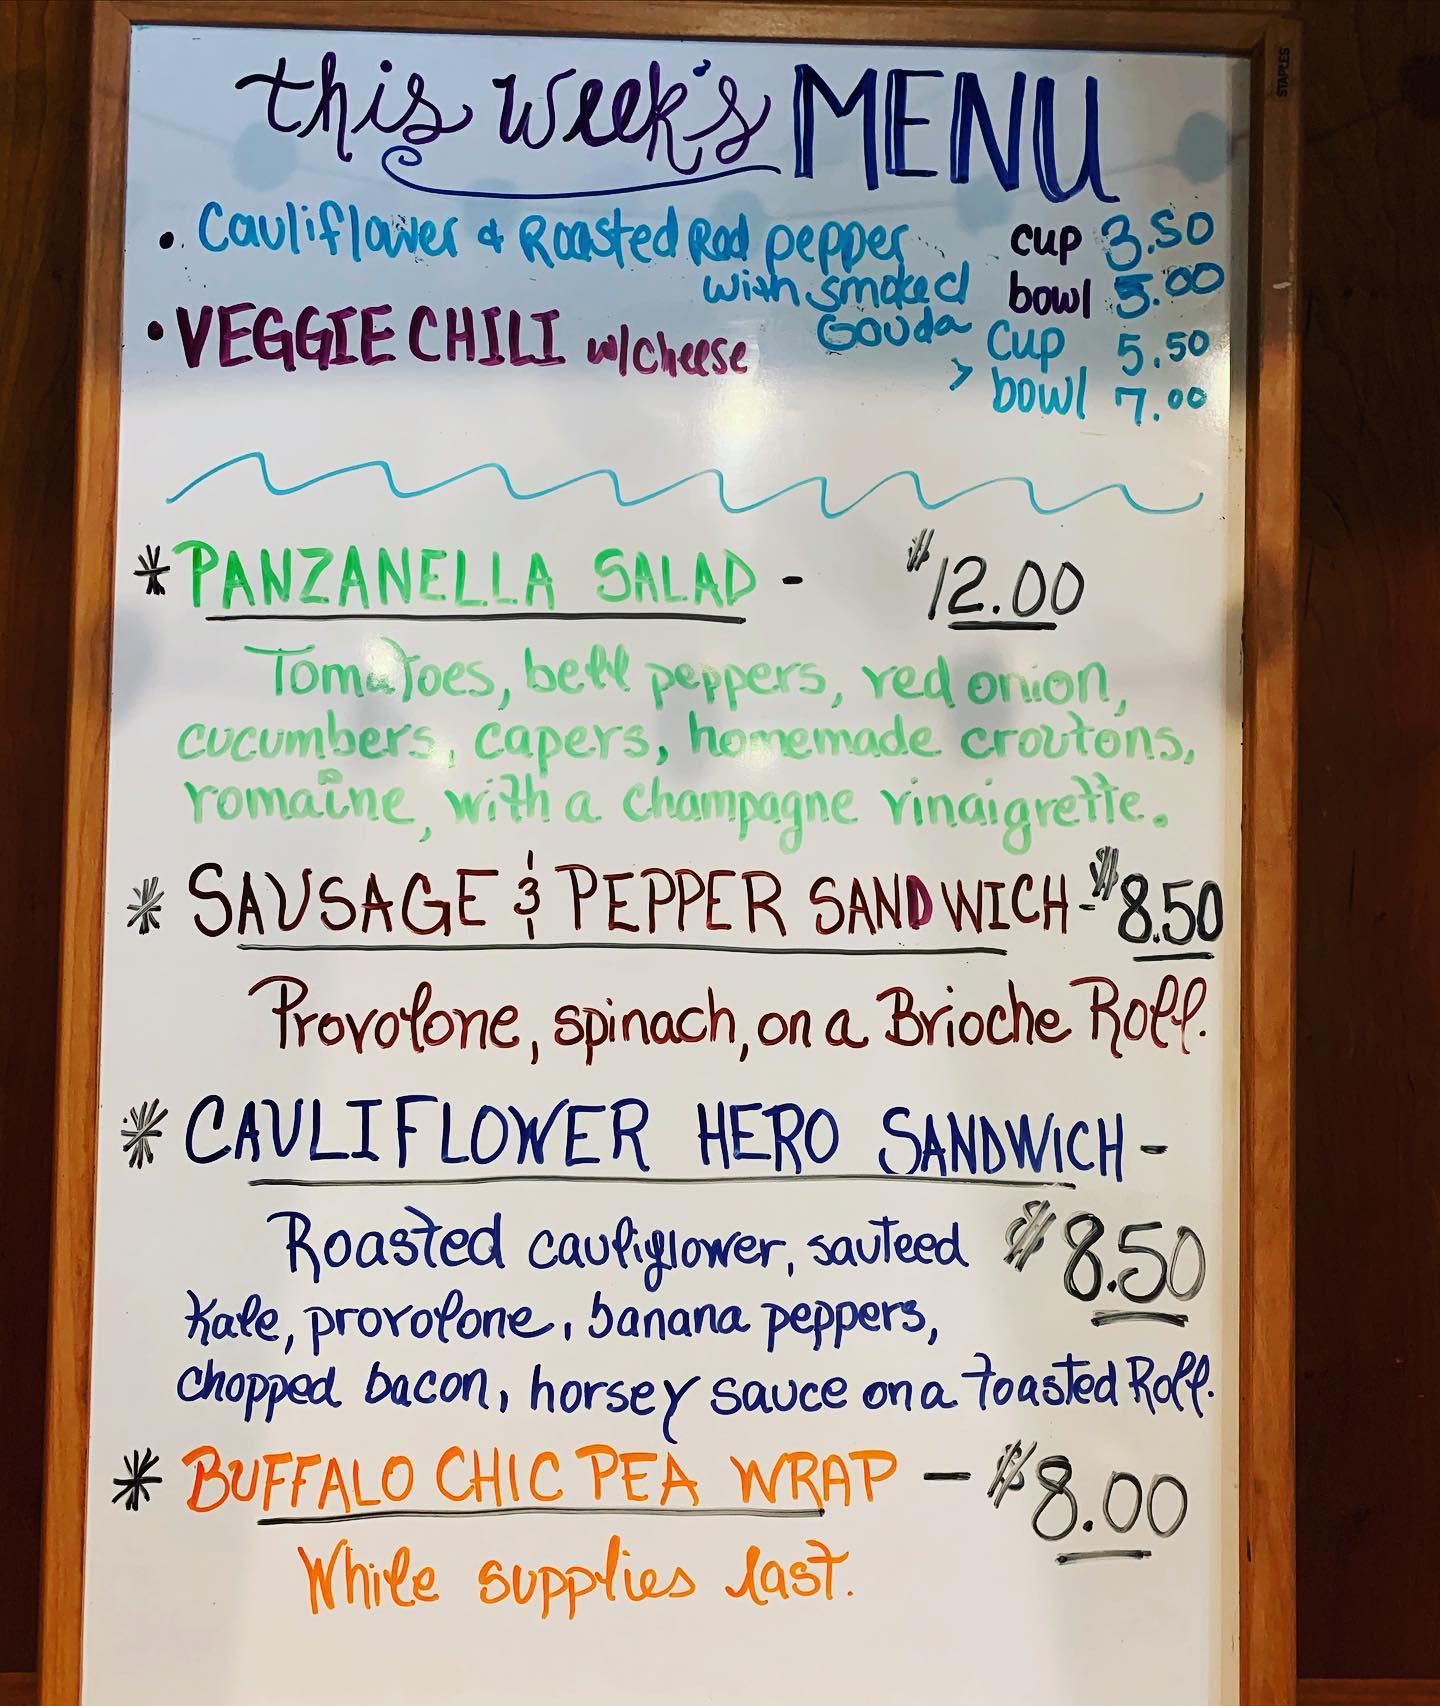 this week's MENU
• Cauliflower & Roasted Red pepper cup 3.50
with smoked bowl 5.00
Gouda
• VEGGIE CHILI w/cheese > cup 5.50
bowl 7.00
* PANZANELLA SALAD - $12.00
Tomatoes, bell peppers, red onion,
cucumbers, capers, homemade croutons,
romaine, with a champagne vinaigrette.
* SAUSAGE & PEPPER SANDWICH - $8.50
Provolone, spinach, on a Brioche Roll.
* CAULIFLOWER HERO SANDWICH -
Roasted cauliflower, sauteed $8.50
Kale, provolone, banana peppers,
chopped bacon, horsey sauce on a Toasted Roll.
* BUFFALO CHIC PEA WRAP - $8.00
While supplies last.
STAPLES